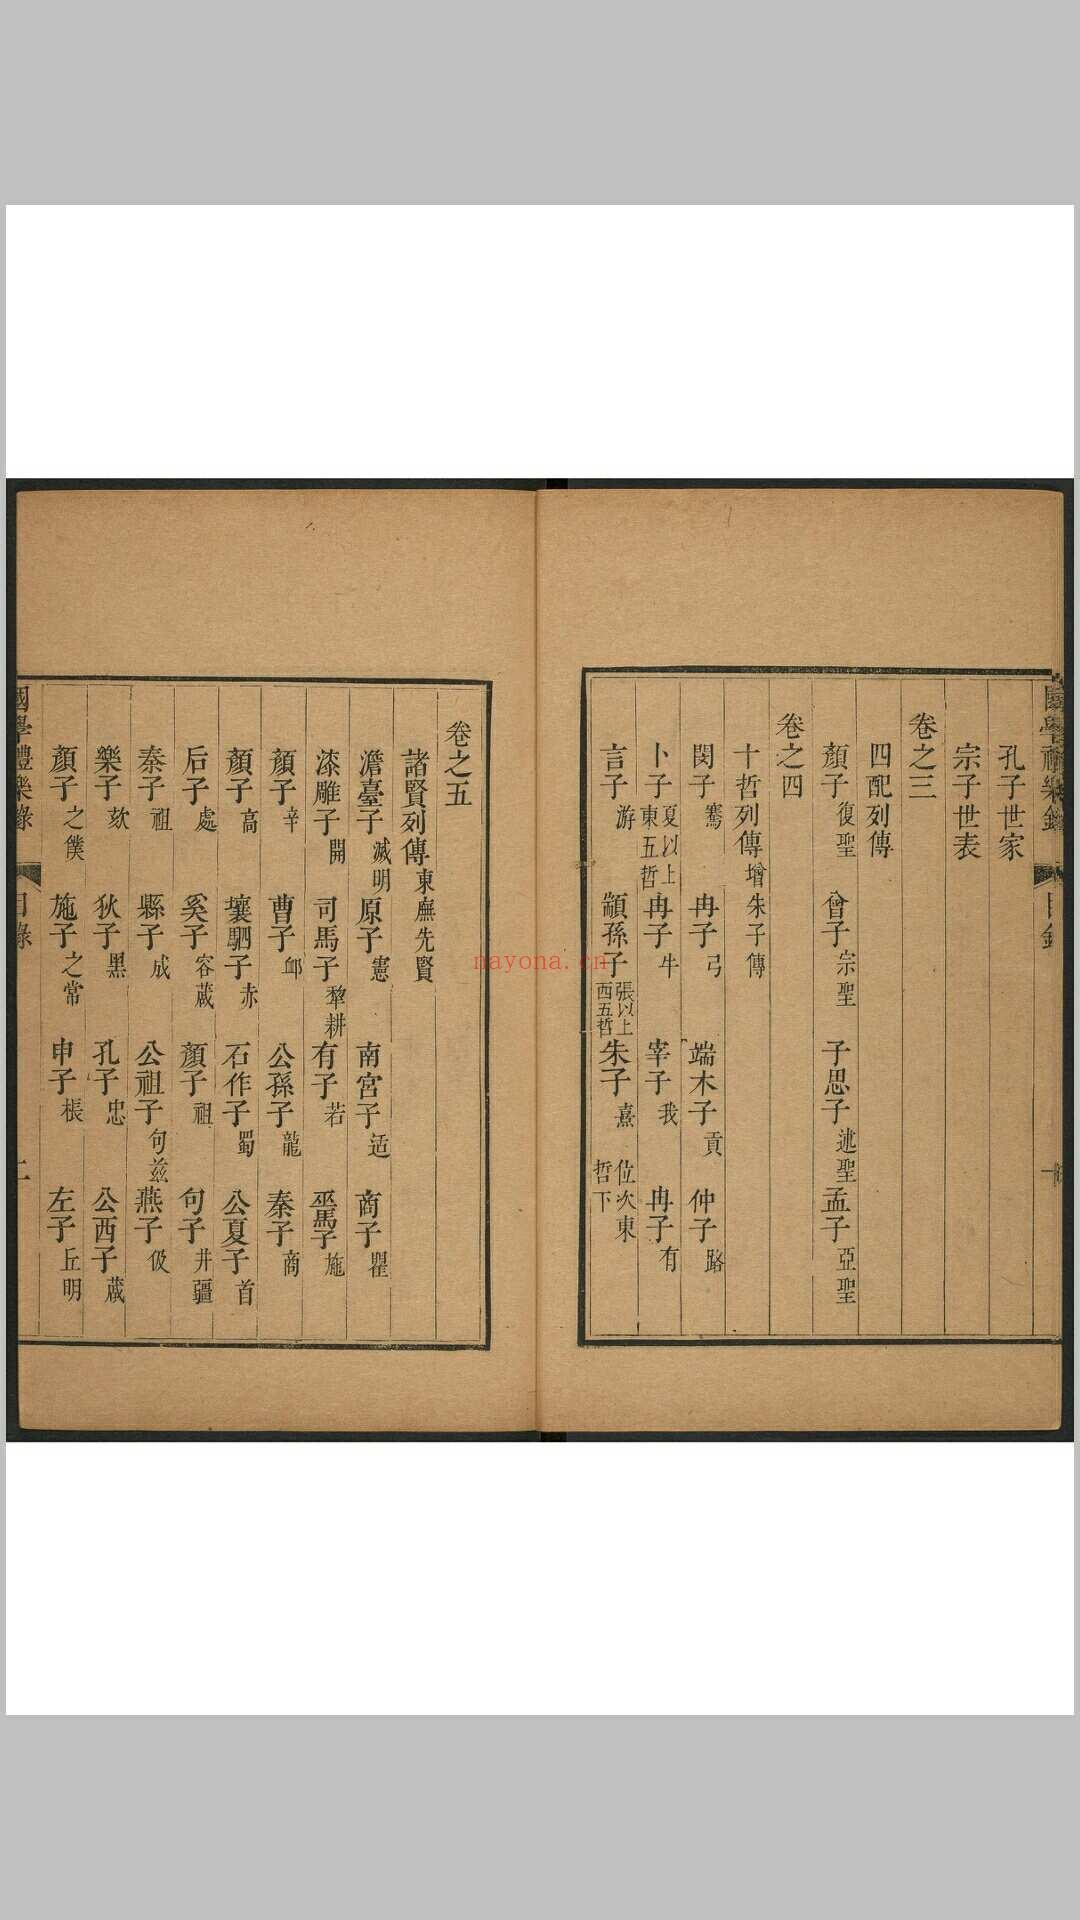 國學禮樂錄 目錄
孔子世家
宗子世表
卷之三
四配列傳
顏子復聖 曾子宗聖 子思子述聖 孟子亞聖
卷之四
十哲列傳增朱子傳
閔子騫 冉子弓 端木子貢 仲子路
卜子夏以上東五哲 冉子牛 宰子我 冉子有
言子游 顓孫子張以上西五哲 朱子熹 位次東哲下
卷之五
諸賢列傳東廡先賢
澹臺子滅明 原子憲 南宮子适 商子瞿
漆雕子開 司馬子犂耕 有子若 巫馬子施
顏子辛 曹子卹 公孫子龍 秦子商
顏子高 壤駟子赤 石作子蜀 公夏子首
后子處 奚子容蒧 顏子祖 句子井疆
秦子祖 縣子成 公祖子句兹 燕子伋
樂子欬 狄子黑 孔子忠 公西子蒧
顏子之僕 施子之常 申子棖 左子丘明
國學禮樂錄 目錄 二
nayona.cn